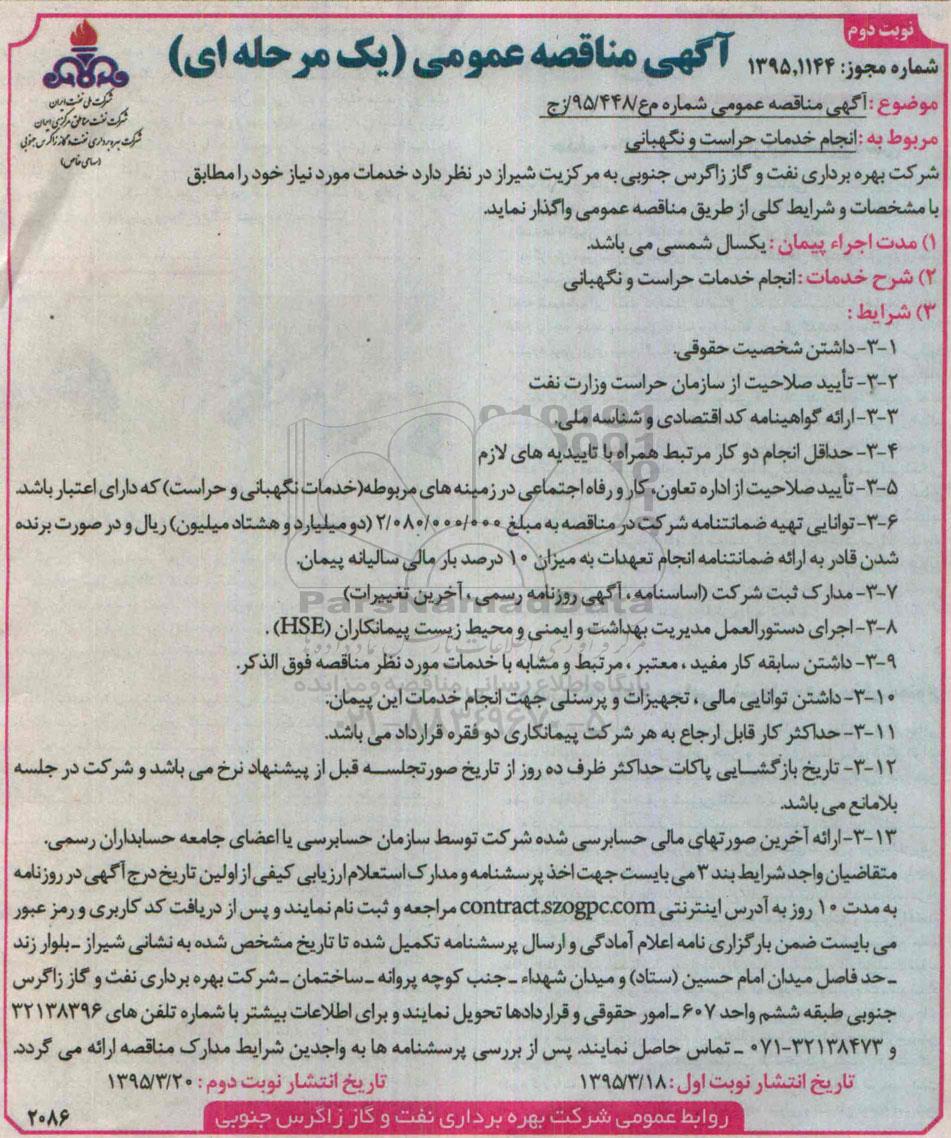 نوبت دوم
آگهی مناقصه عمومی (یک مرحله ای)
شماره مجوز: ۱۳۹۵,۱۱۴۴
شرکت ملی نفت ایران
شرکت نفت مناطق مرکزی ایران
شرکت بهره برداری نفت و گاز زاگرس جنوبی
(سهامی خاص)
موضوع : آگهی مناقصه عمومی شماره م‌ع/۹۵/۴۴۸/زج
مربوط به : انجام خدمات حراست و نگهبانی
شرکت بهره برداری نفت و گاز زاگرس جنوبی به مرکزیت شیراز در نظر دارد خدمات مورد نیاز خود را مطابق
با مشخصات و شرایط کلی از طریق مناقصه عمومی واگذار نماید.
۱) مدت اجراء پیمان : یکسال شمسی می باشد.
۲) شرح خدمات : انجام خدمات حراست و نگهبانی
۳) شرایط :
۳-۱- داشتن شخصیت حقوقی.
۳-۲- تأیید صلاحیت از سازمان حراست وزارت نفت
۳-۳- ارائه گواهینامه کد اقتصادی و شناسه ملی.
۳-۴- حداقل انجام دو کار مرتبط همراه با تاییدیه های لازم
۳-۵- تأیید صلاحیت از اداره تعاون، کار و رفاه اجتماعی در زمینه های مربوطه (خدمات نگهبانی و حراست) که دارای اعتبار باشد.
۳-۶- توانایی تهیه ضمانتنامه شرکت در مناقصه به مبلغ ۲/۰۸۰/۰۰۰/۰۰۰ (دو میلیارد و هشتاد میلیون) ریال و در صورت برنده
شدن قادر به ارائه ضمانتنامه انجام تعهدات به میزان ۱۰ درصد بار مالی سالیانه پیمان.
۳-۷- مدارک ثبت شرکت (اساسنامه ، آگهی روزنامه رسمی ، آخرین تغییرات)
۳-۸- اجرای دستورالعمل مدیریت بهداشت و ایمنی و محیط زیست پیمانکاران (HSE) .
۳-۹- داشتن سابقه کار مفید ، معتبر ، مرتبط و مشابه با خدمات مورد نظر مناقصه فوق الذکر.
۳-۱۰- داشتن توانایی مالی ، تجهیزات و پرسنلی جهت انجام خدمات این پیمان.
۳-۱۱- حداکثر کار قابل ارجاع به هر شرکت پیمانکاری دو فقره قرارداد می باشد.
۳-۱۲- تاریخ بازگشایی پاکات حداکثر ظرف ده روز از تاریخ صورتجلسه قبل از پیشنهاد نرخ می باشد و شرکت در جلسه
بلامانع می باشد.
۳-۱۳- ارائه آخرین صورتهای مالی حسابرسی شده شرکت توسط سازمان حسابرسی یا اعضای جامعه حسابداران رسمی.
متقاضیان واجد شرایط بند ۳ می بایست جهت اخذ پرسشنامه و مدارک استعلام ارزیابی کیفی از اولین تاریخ درج آگهی در روزنامه
به مدت ۱۰ روز به آدرس اینترنتی contract.szogpc.com مراجعه و ثبت نام نمایند و پس از دریافت کد کاربری و رمز عبور
می بایست ضمن بارگزاری نامه اعلام آمادگی و ارسال پرسشنامه تکمیل شده تا تاریخ مشخص شده به نشانی شیراز ـ بلوار زند
ـ حد فاصل میدان امام حسین (ستاد) و میدان شهداء ـ جنب کوچه پروانه ـ ساختمان ـ شرکت بهره برداری نفت و گاز زاگرس
جنوبی طبقه ششم واحد ۶۰۷ ـ امور حقوقی و قراردادها تحویل نمایند و برای اطلاعات بیشتر با شماره تلفن های ۳۲۱۳۸۳۹۶
و ۳۲۱۳۸۴۷۳-۰۷۱ ـ تماس حاصل نمایند. پس از بررسی پرسشنامه ها به واجدین شرایط مدارک مناقصه ارائه می گردد.
تاریخ انتشار نوبت اول : ۱۳۹۵/۳/۱۸ تاریخ انتشار نوبت دوم : ۱۳۹۵/۳/۲۰
روابط عمومی شرکت بهره برداری نفت و گاز زاگرس جنوبی
۲۰۸۶
ParsNamadData
پایگاه اطلاع رسانی مناقصه و مزایده
۰۲۱-۸۸۳۴۹۶۷۰-۵